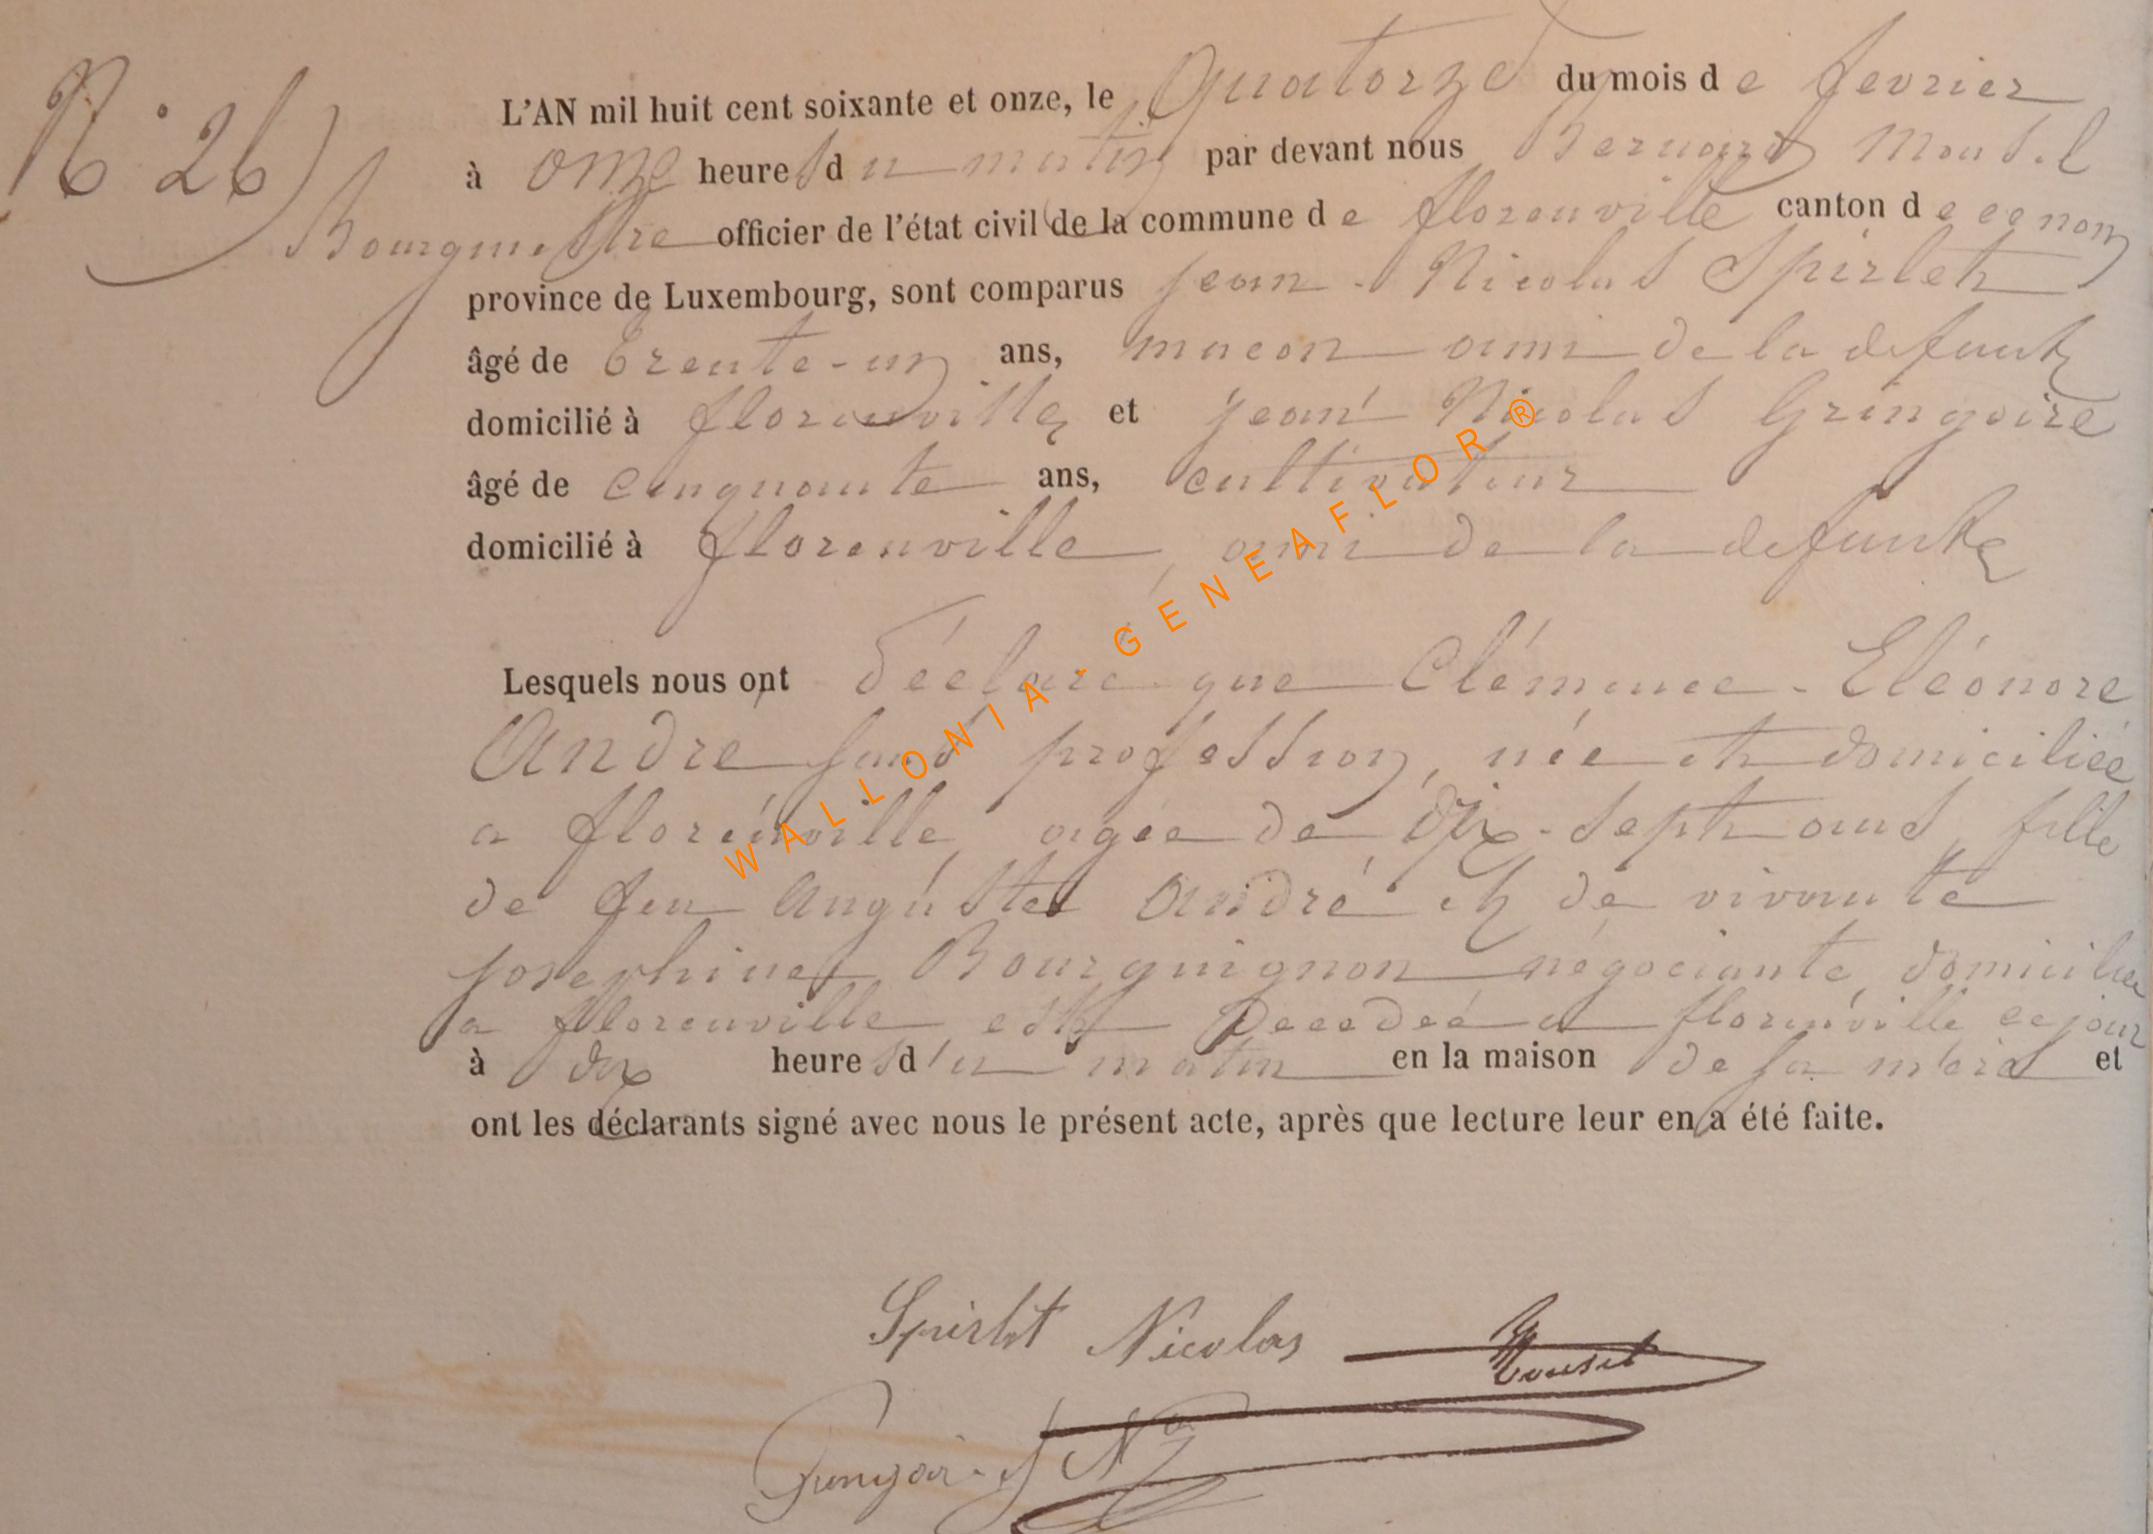 N° 26
L'AN mil huit cent soixante et onze, le Quatorze du mois de fevrier
à onze heures du matin par devant nous Bernard Mousel
Bourgmestre officier de l'état civil de la commune de florenville canton de ce nom
province de Luxembourg, sont comparus jean-Nicolas Spirlet
âgé de trente-un ans, macon ami de la defunte
domicilié à florenville et jean Nicolas Gringoire
âgé de cinquante ans, cultivateur
domicilié à florenville, ami de la defunte
Lesquels nous ont déclaré que Clémence-Eléonore
André sans profession, née et domiciliée
a florenville, agée de dix-sept ans, fille
de feu Auguste André et de vivante
josephine Bourguignon négociante, domiciliée
a florenville est décedée a florenville ce jour
à dix heures du matin en la maison de sa mère et
ont les déclarants signé avec nous le présent acte, après que lecture leur en a été faite.
Spirlet Nicolas Mousel
J N
WALLONIA-GENEAFLOR®